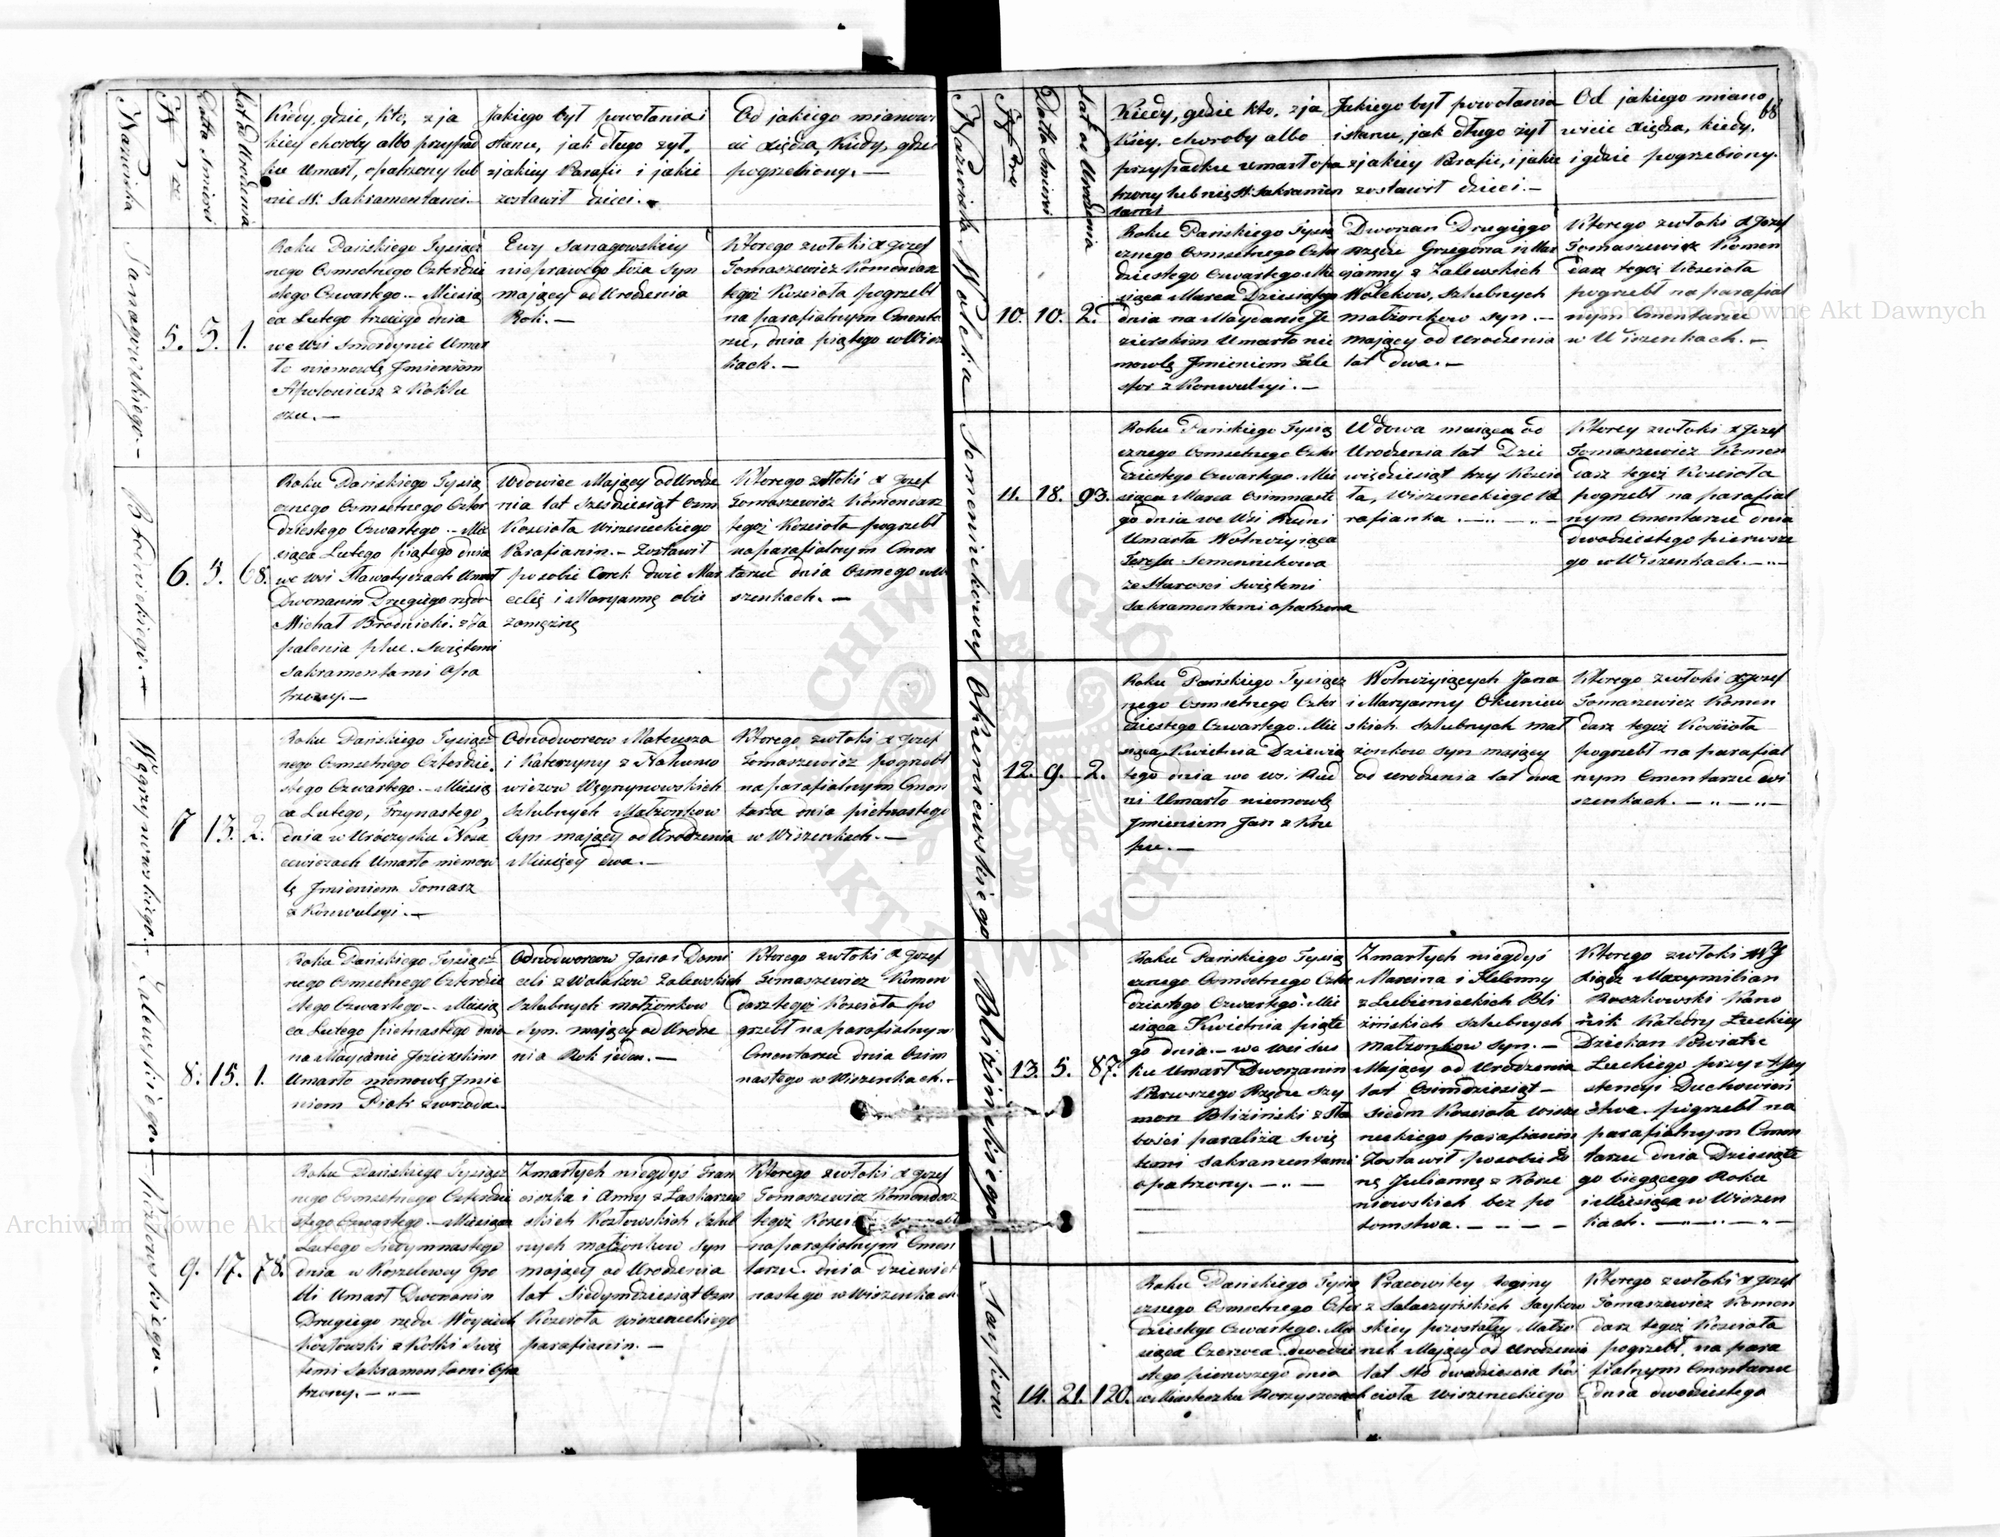 Nazwiska
No
Data Śmierci
Lat od Urodzenia
Kiedy, gdzie, kto, z ja
kiey choroby albo przypad
ku Umarł, opatrzony lub
nie SS. Sakramentami.
Jakiego był powołania i
stanu, jak długo żył,
z jakiey Parafii i jakie
zostawił dzieci.
Od jakiego mianowi
cie xiędza, Kiedy, gdzie
pogrzebiony. —
Sanagowskiego —
5. 5. 1.
Roku Pańskiego Tysiącz
nego Osmsetnego Czterdzie
stego Czwartego — Miesią
ca Lutego trzeciego dnia
we Wsi Smerdynie Umar
ło niemowlę Jmieniem
Apoloniusz z Koklu
szu. —
Ewy Sanagowskiey
nieprawego łoża syn
mający od Urodzenia
Rok. —
Którego zwłoki X Jozef
Tomaszewicz Komendarz
tegoż Kościoła pogrzebł
na parafialnym Cmenta
rzu, dnia piątego w Wisz
kach. —
Brodnickiego. —
6. 5. 68.
Roku Pańskiego Tysią
cznego Osmsetnego Czter
dziestego Czwartego — Mie
siąca Lutego piątego dnia
we Wsi Sławatyczach Umarł
Dworzanin Drugiego rzędu
Michał Brodnicki z Za
palenia płuc. Swiętemi
Sakramentami Opa
trzony. —
Wdowiec Mający od Urodze
nia lat Sześdziesiąt Osm
Kościoła Wiszeneckiego
Parafianin. — Zostawił
po sobie Corek dwie Mar
cellę i Maryannę obie
zamężnę
Którego zwłoki X Jozef
Tomaszewicz Komendarz
tegoż Kościoła pogrzebł
na parafialnym Cmen
tarzu dnia Osmego w Wi
szenkach. —
Węgrzynowskiego.
7 13. 2.
Roku Pańskiego Tysiącz
nego Osmsetnego Czterdzie
stego Czwartego — Miesią
ca Lutego, Trzynastego
dnia w Uroczysku Noza
cewiczach Umarło niemow
lę Jmieniem Tomasz
z Konwulsyi. —
Odnodworcow Mateusza
i Katarzyny z Nahumo
wiczow Węgrynowskich
Szlubnych Małżonkow
Syn mający od Urodzenia
Miesięcy dwa. —
Którego zwłoki X Jozef
Tomaszewicz pogrzebł
na parafialnym Cmen
tarzu dnia piętnastego
w Wiszenkach. —
Zalewskiego. —
8. 15. 1.
Roku Pańskiego Tysiącz
nego Osmsetnego Czterdzie
stego Czwartego — Miesią
ca Lutego piętnastego dnia
na Maydanie Jezierskim
Umarło niemowlę Jmie
niem Piotr z wrzodu.
Odnodworcow Jana i Domi
celi z Wolakow Zalewskich
Szlubnych małżonkow
Syn. mający od Urodze
nia Rok jeden. —
Którego zwłoki X Jozef
Tomaszewicz Komen
darz tegoż Kościoła po
grzebł na parafialnym
Cmentarzu dnia Osim
nastego w Wiszenkach. —
Kozłowskiego. —
9. 17. 78.
Roku Pańskiego Tysiącz
nego Osmsetnego Czterdzie
stego Czwartego — Miesiąca
Lutego Siedymnastego
dnia w Korzelowey Gro
bli Umarł Dworzanin
Drugiego rzędu Woyciech
Kozłowski z Kolki Swię
temi Sakramentami Opa
trzony. — „ —
Zmarłych niegdyś Fran
ciszka i Anny z Laskarzew
skich Kozłowskich Szlub
nych małżonkow syn
mający od Urodzenia
lat Siedymdziesiąt Osm
Kościoła wiszeneckiego
parafianin. —
Którego zwłoki X Jozef
Tomaszewicz Komendarz
tegoż Kościoła pogrzebł
na parafialnym Cmen
tarzu dnia dziewięt
nastego w Wiszenkach
68
Nazwiska
Data Śmierci
Lat od Urodzenia
Kiedy, gdzie, kto, z ja
kiey, choroby albo
przypadku umarł opa
trzony lub nie SS. Sakramen
tami
Jakiego był powołania
i stanu, jak długo żył
z jakiey Parafii, i jakie
zostawił dzieci. —
Od jakiego miano
wicie xiędza, kiedy,
i gdzie pogrzebiony.
Wolka —
10. 10. 2.
Roku Pańskiego Tysią
cznego Osmsetnego Czter
dziestego Czwartego. Mie
siąca Marca Dziesiątego
dnia na Maydanie Je
zierskim Umarło nie
mowlę Jmieniem Tele
sfor z Konwulsyi. —
Dworzan Drugiego
rzędu Grzegorza i Mar
yanny z Zalewskich
Wolekow, Szlubnych
małżonkow syn. —
mający od Urodzenia
lat dwa. —
Którego zwłoki X Jozef
Tomaszewicz Komen
darz tegoż Kościoła
pogrzebł na parafial
nym Cmentarzu
w Wiszenkach. —
Semenienkowey
11. 18. 93.
Roku Pańskiego Tysią
cznego Osmsetnego Czter
dziestego Czwartego. Mie
siąca Marca Osimnaste
go dnia we Wsi Rudni
Umarła Wolnożyjąca
Teresa Semenienkowa
ze Starosci Swiętemi
Sakramentami Opatrzona
Wdowa mająca od
Urodzenia lat Dzie
więdziesiąt trzy Kościo
ła, Wiszeneckiego Pa
rafianka. — „ — „ —
Którey zwłoki X Jozef
Tomaszewicz Komen
darz tegoż Kościoła
pogrzebł na parafial
nym Cmentarzu dnia
dwódziestego pierwsze
go w Wiszenkach. — „ —
Okieniewskiego
12. 9. 2.
Roku Pańskiego Tysiącz
nego Osmsetnego Czter
dziestego Czwartego. Mie
siąca Kwietnia Dziewią
tego dnia we wsi Rud
ni Umarło niemowlę
Jmieniem Jan z Kru
pu. —
Wolnożyjących Jana
i Maryanny Okieniew
skich Szlubnych mał
żonkow syn mający
od urodzenia lat dwa
Którego zwłoki X Jozef
Tomaszewicz Komen
darz tegoż Kościoła
pogrzebł na parafial
nym Cmentarzu Wi
szenkach. — „ — „ —
Blizinskiego —
13. 5. 87.
Roku Pańskiego Tysią
cznego Osmsetnego Czter
dziestego Czwartego. Mie
siąca Kwietnia piąte
go dnia. — we wsi Sus
ku Umarł Dworzanin
Pierwszego Rzędu Szy
mon Bliziński z Sła
bości paraliża Swię
temi Sakramentami
opatrzony. — „ —
Zmarłych niegdyś
Marcina i Helenny
z Lubienieckich Bli
zińskich Szlubnych
Małżonkow syn. —
Mający od Urodzenia
lat Osimdziesiąt —
siedm Kościoła wisze
neckiego parafianin
Zostawił po sobie Żo
nę Juliannę z Korze
niowskich bez po
tomstwa. — — — —
Którego zwłoki
Xiądz Maxymilian
Roczkowski Kano
nik Katedry Łuckiey
Dziekan Powiatu
Łuckiego przy Assy
stencyi Duchowień
stwa. pogrzebł na
parafialnym Cmen
tarzu dnia Dziesiąte
go biegącego Roku
i Miesiąca w Wiszen
kach. — „ — „ —
14. 21. 120.
Roku Pańskiego Tysią
cznego Osmsetnego Czter
dziestego Czwartego. Mie
siąca Czerwca dwudzie
stego pierwszego dnia
w Miasteczku Rozyszczach
Pracowitey Reginy
z Salaczyńskich Saykow
skiey pozostały Małżo
nek Mający od Urodzenia
lat Sto dwadzieścia Koś
cioła Wiszeneckiego
Którego zwłoki X Jozef
Tomaszewicz Komen
darz tegoż Kościoła
pogrzebł, na para
fialnym Cmentarzu
dnia dwodziestego
Archiwum Główne Akt Dawnych
Archiwum Główne Akt Dawnych
ARCHIWUM GŁÓWNE AKT DAWNYCH